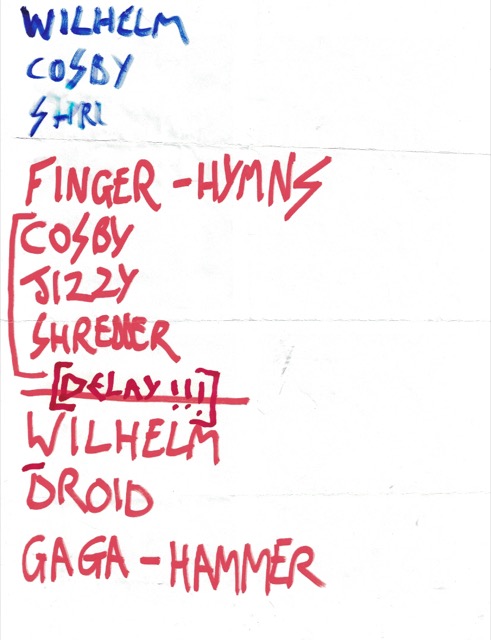 WILHELM
COSBY
SHRI
FINGER-HYMNS
COSBY
JIZZY
SHREDDER
[DELAY!!!]
WILHELM
DROID
GAGA-HAMMER